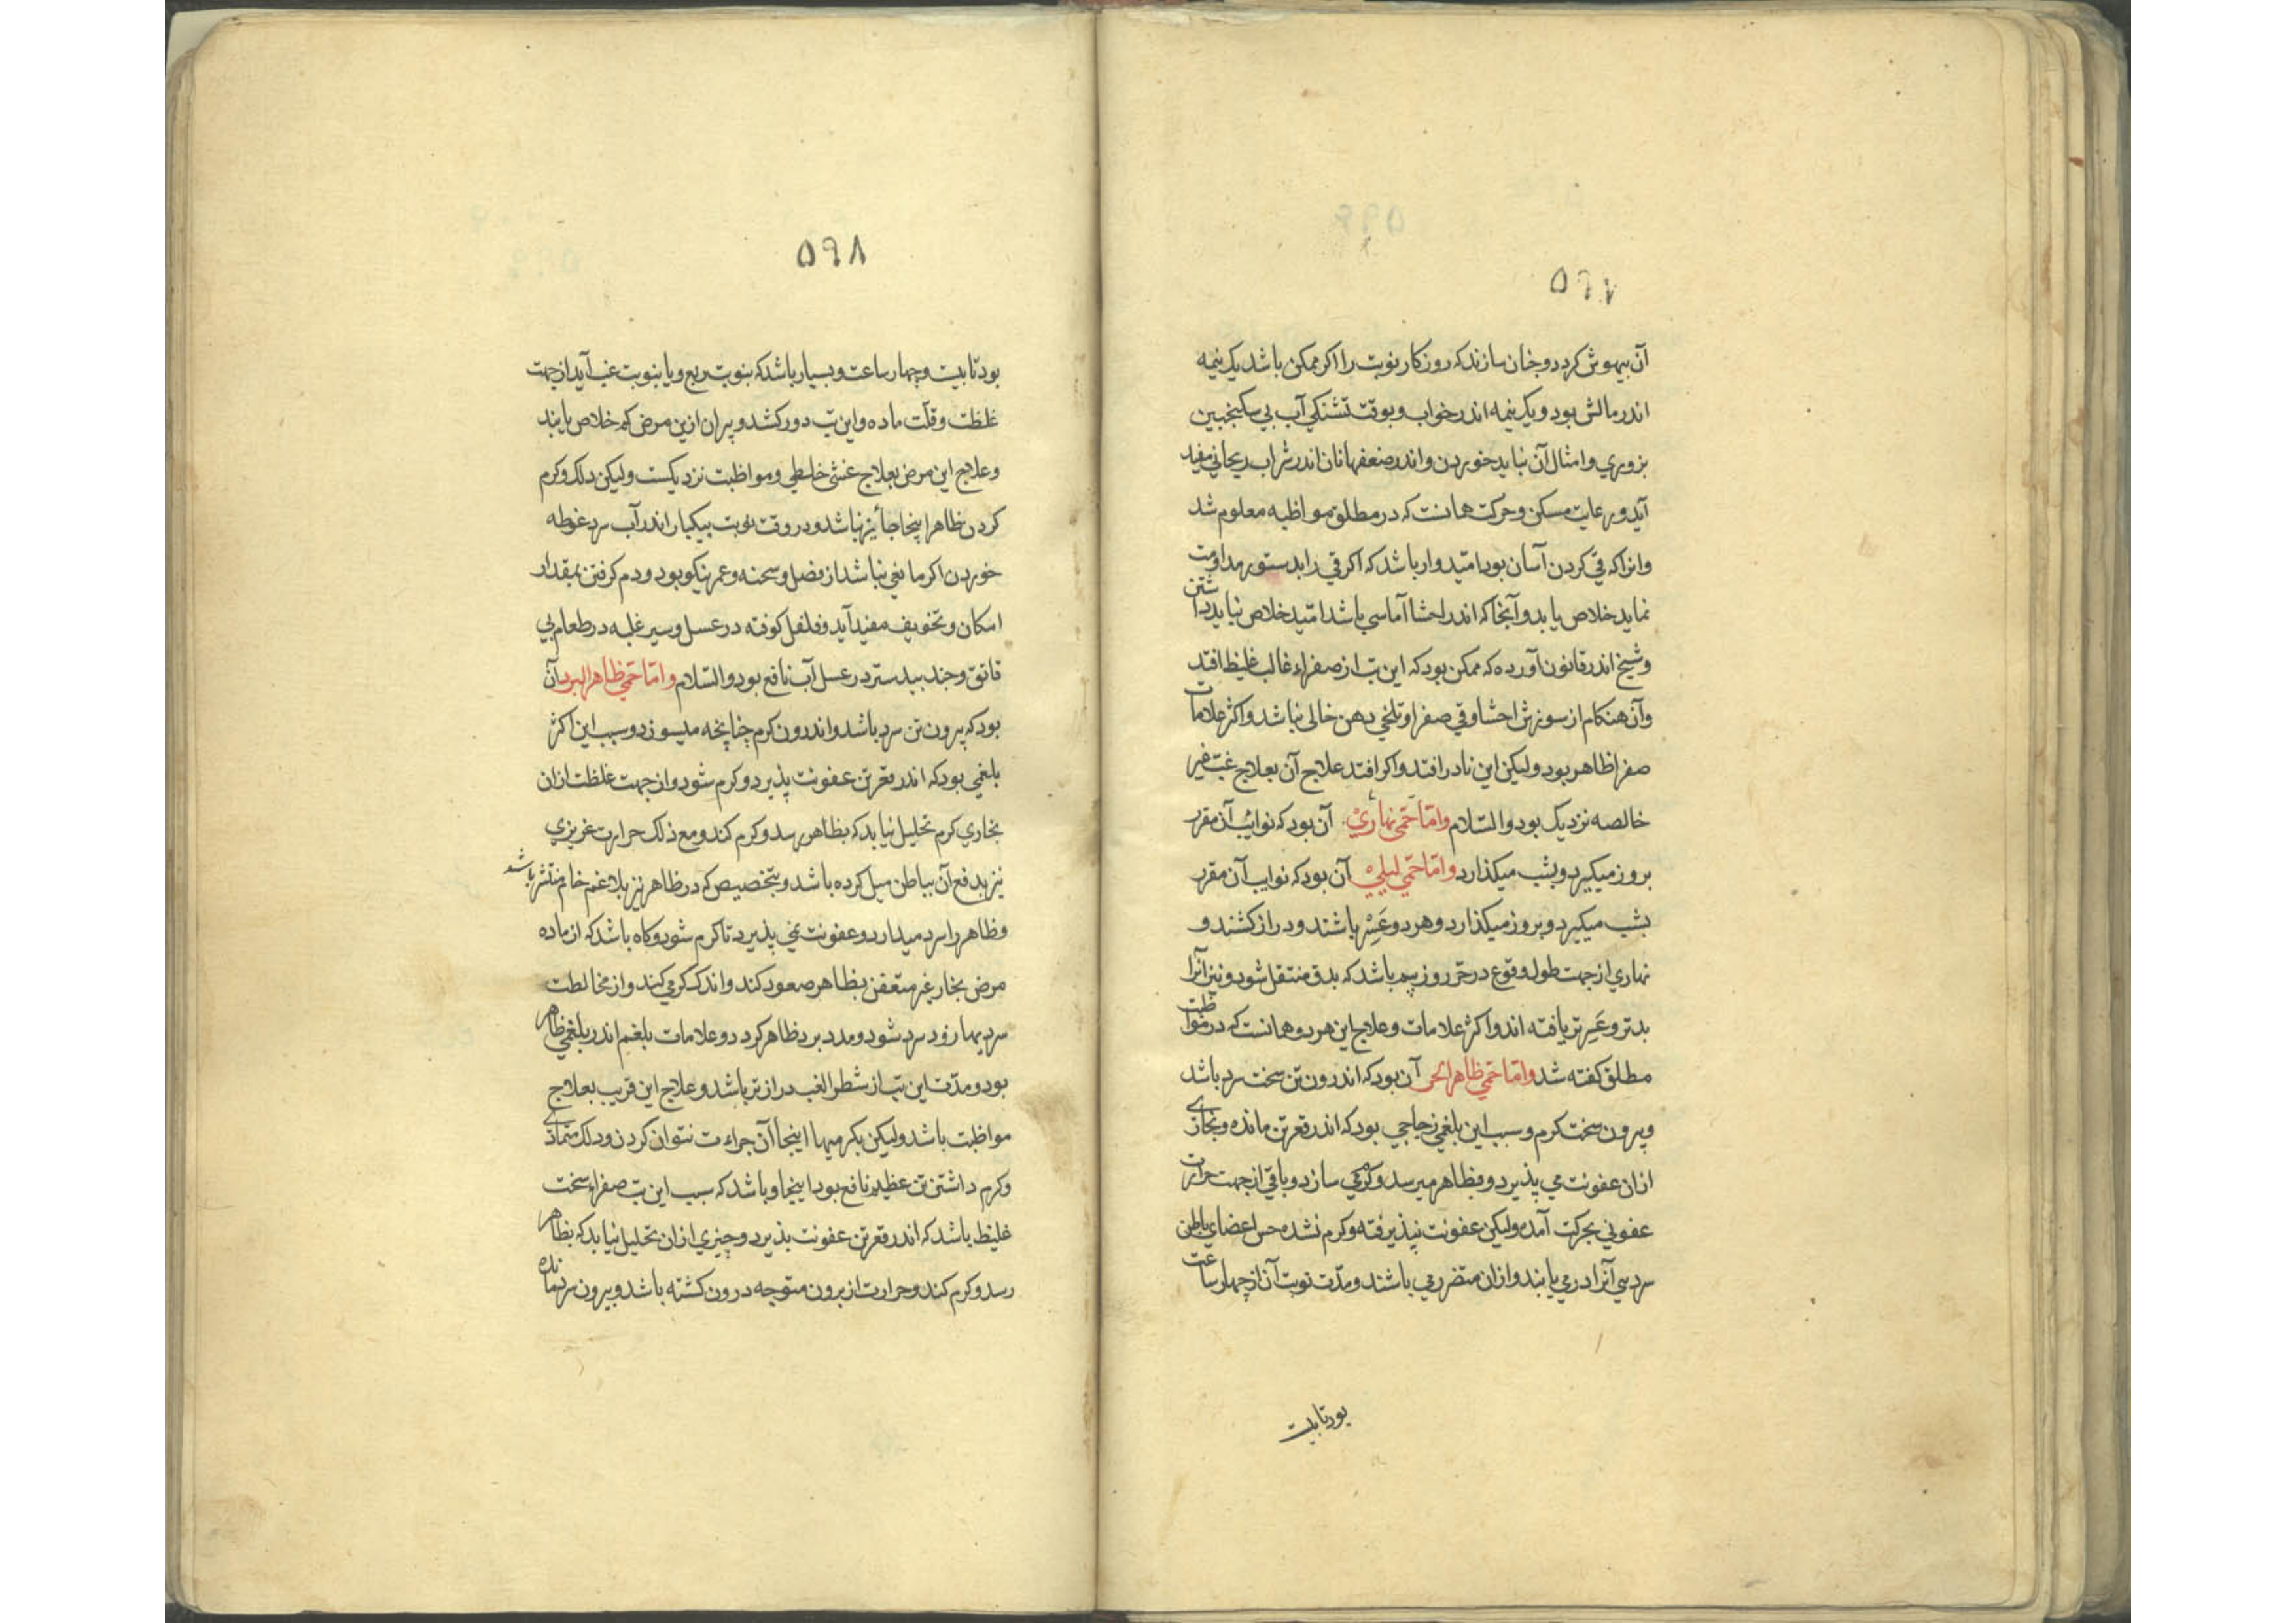 ٥٩٧
آن بیهوش کردد و چنان سازند که روزکار نوبت را اکر ممکن باشد یک نیمه
اندر مالش بود و یک نیمه اندر خواب و بوقت تشنکی آب بی سکنجبین
بزوری و امثال آن نباید خوردن و اندر ضعفها نان اندر شراب ریحانی مفید
آید و رعایت مسکن و حرکت همانست که در مطلق مواظبه معلوم شد
وانرا که قی کردن آسان بود امّیدوار باشد که اکر قی را بدستور مداومت
نماید خلاص یابد و آنجا که اندر احشا آماسی باشد امّید خلاص نباید داشتن
و شیخ اندر قانون آورده که ممکن بود که این تب از صفراء غالب غلیظ افتد
و آن هنکام از سوزش احشا و قی صفرا و تلخی دهن خالی نباشد و اکثر علامات
صفرا ظاهر بود و لیکن این نادر افتد و اکر افتد علاج آن بعلاج غب غیر
خالصه نزدیک بود والسّلام وامّا حمّی نهاری آن بود که نوایب آن مقرر
بروز میکیرد و بشب میکذارد وامّا حمّی لیلی آن بود که نوایب آن مقرر
بشب میکیرد و بروز میکذارد و هر دو عَسِر باشند و دراز کشند و
نهاری از جهت طول وقوع در حرّ روز بیم باشد که بدق منتقل شود و نیز آنرا
بدتر و عَسِرتر یافته اند و اکثر علامات و علاج این هر دو همانست که در مواظبت
مطلق کفته شد وامّا حمّی ظاهر الحر آن بود که اندرون تن سخت سرد باشد
و بیرون سخت کرم و سبب این بلغمی زجاجی بود که اندر قعر تن مانده و بخاری
ازان عفونت می پذیرد و بظاهر میرسد و کرمی میسازد و باقی از جهت حرارت
عفونی بحرکت آمده ولیکن عفونت نپذیرفته و کرم نشده حس اعضای باطن
سردی آنرا درمی یابند و ازان متضرر می باشند و مدّت نوبت آن از چهار ساعت
بود تا بیست
٥٩٨
بود تا بیست و چهار ساعت و بسیار باشد که بنوبت ربع و یا بنوبت غب آید از جهت
غلظت و قلّت ماده و این تب دور کشد و پیران ازین مرض کم خلاص یابند
و علاج این مرض بعلاج غشی خلطی و مواظبت نزدیکست ولیکن دلک و کرم
کردن ظاهر اینجا جأیز نباشد و در وقت نوبت بیکبار اندر آب سرد غوطه
خوردن اکر مانعی نباشد از فصل و سحنه و عمر نیکو بود و دم کرفتن بمقدار
امکان و تخویف مفید آید و فلفل کوفته در عسل و سیر غلبه در طعام بی
قاتق و جند بیدستر در عسل آب نافع بود والسّلام وامّا حمّی ظاهر البرد آن
بود که بیرون تن سرد باشد و اندرون کرم چنانچه میسوزد و سبب این اکثر
بلغمی بود که اندر قعر تن عفونت پذیرد و کرم شود و از جهت غلظت ازان
بخاری کرم تحلیل نیابد که بظاهر رسد و کرم کند و مع ذلک حرارت غریزی
نیز بدفع آن بباطن میل کرده باشد و بتخصیص که در ظاهر نیز بلاغم خام منتشر باشد
و ظاهر را سرد میدارد و عفونت نمی پذیرد تا کرم شود و کاه باشد که از ماده
مرض بخار غیر متعفن بظاهر صعود کند و اندک کرمی کند و از مخالطت
سردیها زود سرد شود و مدد برد ظاهر کردد و علامات بلغم اندر بلغمی ظاهر
بود و مدّت این تب از شطر الغب درازتر باشد و علاج این قریب بعلاج
مواظبت باشد ولیکن بکرمیها اینجا آن جراءت نتوان کردن و دلک متمادی
و کرم داشتن تن عظیم نافع بود اینجا و باشد که سبب این تب صفراء سخت
غلیظ باشد که اندر قعر تن عفونت پذیرد و چیزی ازان تحلیل نیابد که بظاهر
رسد و کرم کند و حرارت از برون متوجه درون کشته باشد و بیرون سرد مانده